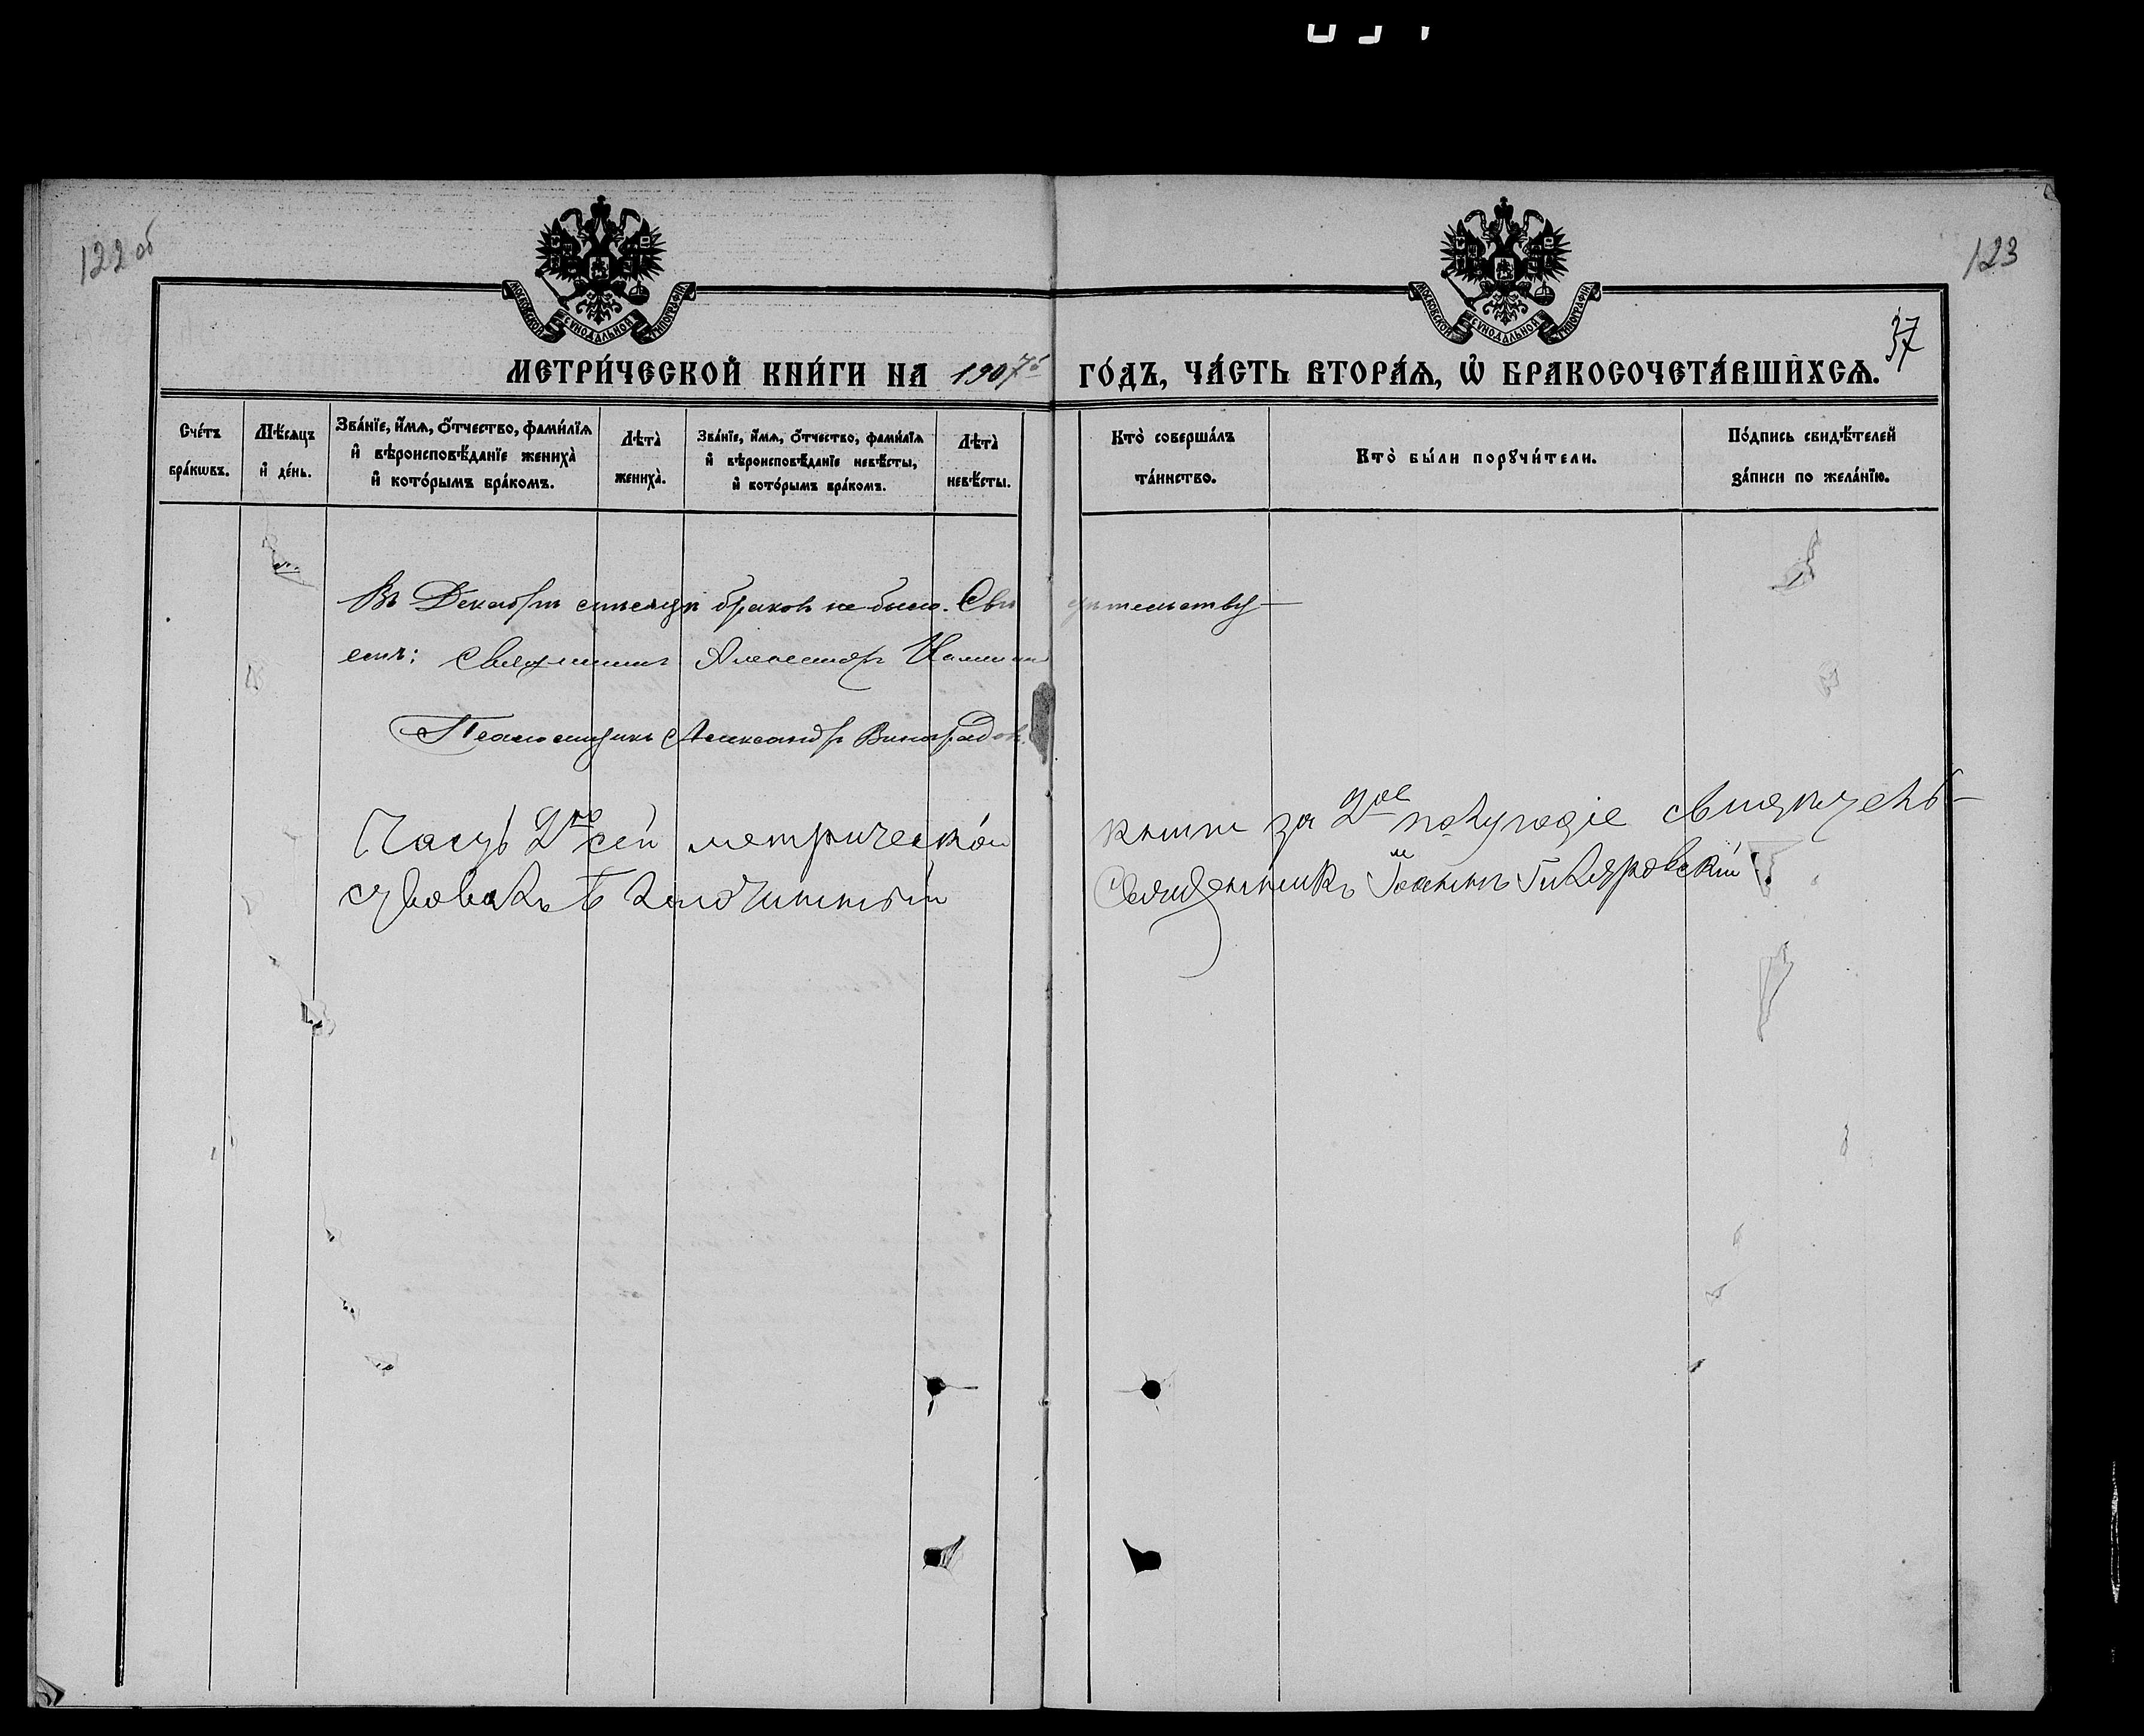 122 об
123
МОСКОВСКОЙ СѴНОДАЛЬНОЙ ТИПОГРАФІИ
МОСКОВСКОЙ СѴНОДАЛЬНОЙ ТИПОГРАФІИ
37
МЕТРИ́ЧЕСКОЙ КНИ́ГИ НА 1907й ГО́ДЪ, ЧА́СТЬ ВТОРА́Ѧ, Ѡ҆ БРАКОСОЧЕТА́ВШИХСѦ.
Сче́тъ бра́кѡвъ.
Мѣ́сѧцъ и҆ де́нь.
Зва́нїе, и҆́мѧ, ѻ҆́тчество, фами́лїѧ и҆ вѣроисповѣ́данїе жениха̀ и҆ кото́рымъ бра́комъ.
Лѣта̀ жениха̀.
Зва́нїе, и҆́мѧ, ѻ҆́тчество, фами́лїѧ и҆ вѣроисповѣ́данїе невѣ́сты, и҆ кото́рымъ бра́комъ.
Лѣта̀ невѣ́сты.
Кто̀ соверша́лъ та́инство.
Кто̀ бы́ли порꙋчи́тели.
По́дпись свидѣ́телей за́писи по жела́нїю.
Въ Декабрѣ мѣсяцѣ браковъ не было. Свидѣтельству-
емъ: Священникъ Александръ
Псаломщикъ Александръ Виноградовъ.
Часть 2ю сей метрической книги за 2ое полугодіе свидѣтель-
ствовалъ Благочинный Священникъ Іоаннъ Гиляровскій